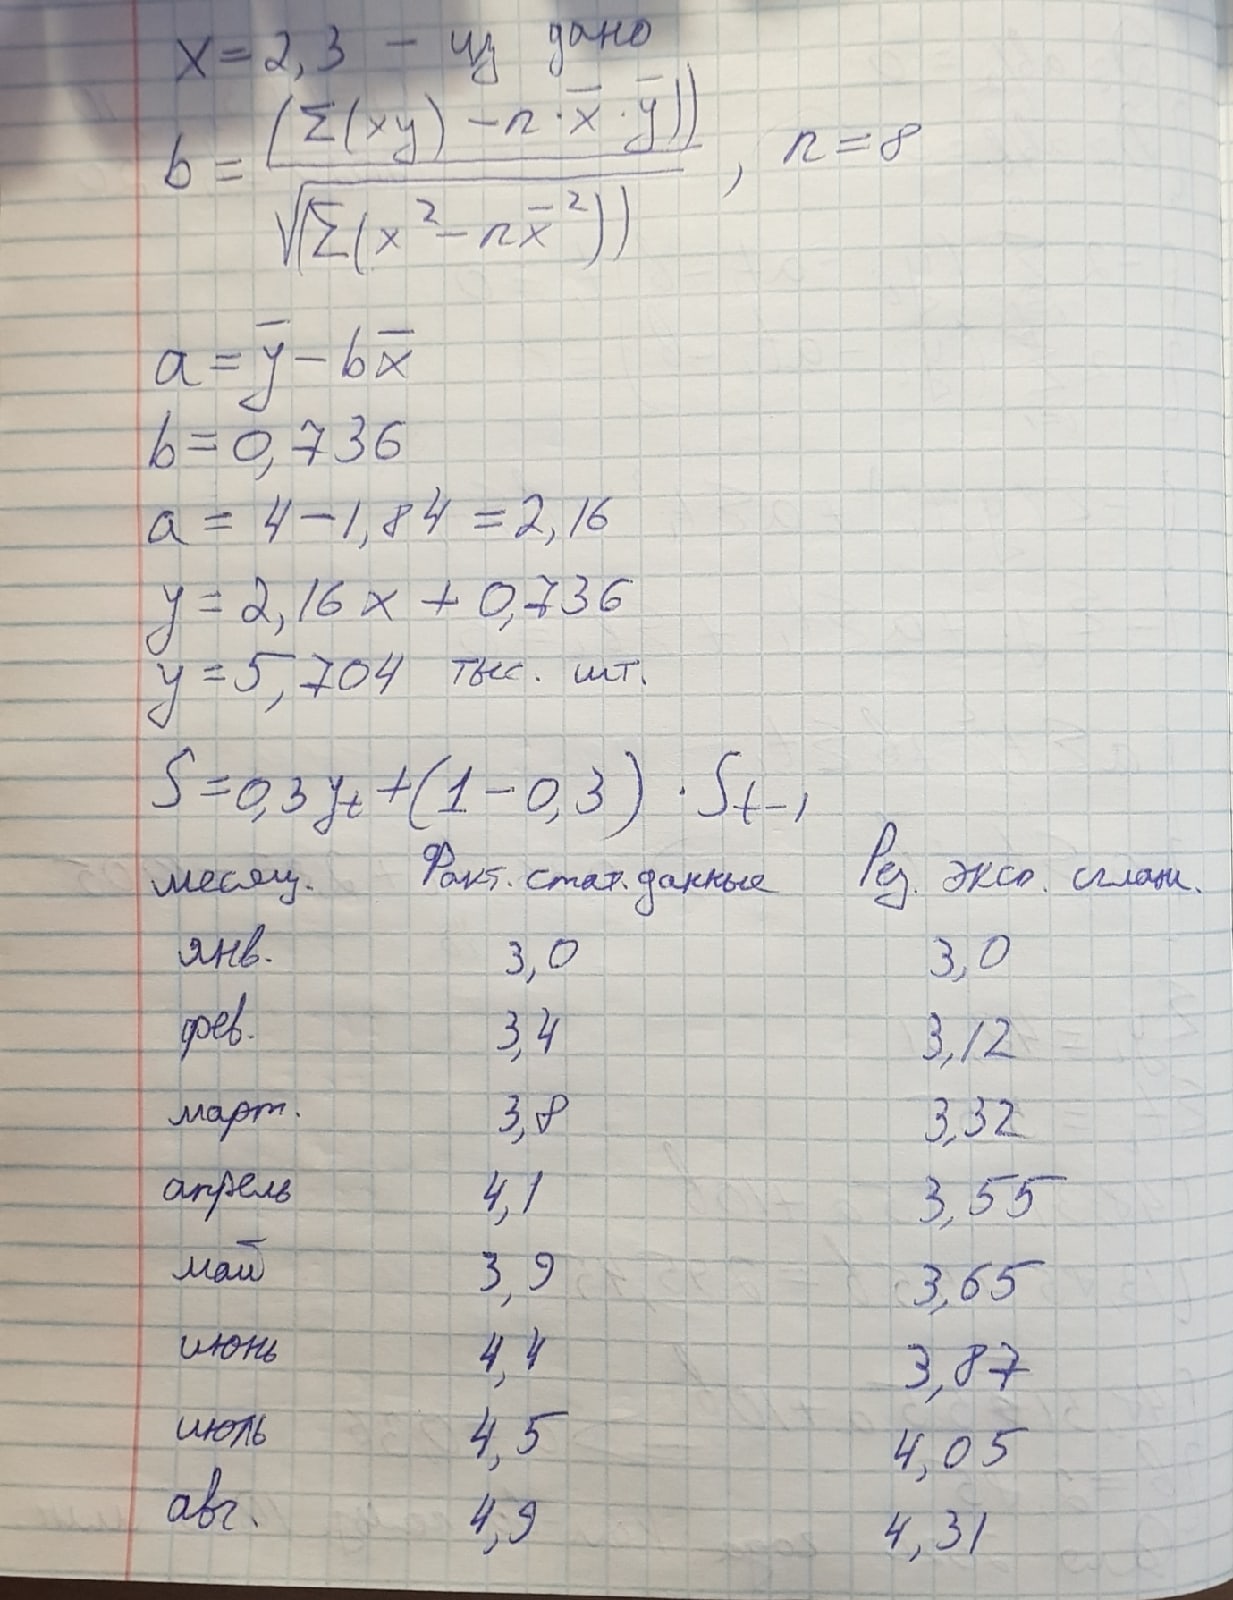 x = 2,3 - из дано
b = (Σ(xy) - n · x̄ · ȳ)) / √(Σ(x² - n x̄²)) , n = 8
a = ȳ - b x̄
b = 0,736
a = 4 - 1,84 = 2,16
y = 2,16 x + 0,736
y = 5,704 тыс. шт.
S = 0,3 yₜ + (1 - 0,3) · Sₜ₋₁
месяц. Факт. стат. данные Рез. эксп. сглаж.
янв. 3,0 3,0
фев. 3,4 3,12
март. 3,8 3,32
апрель 4,1 3,55
май 3,9 3,65
июнь 4,4 3,87
июль 4,5 4,05
авг. 4,9 4,31